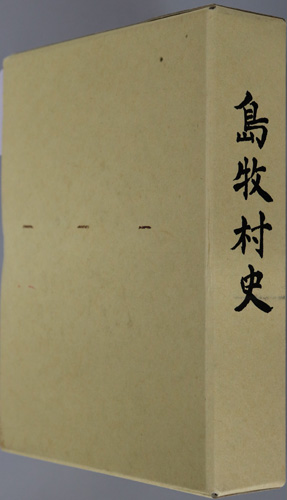 島牧村史